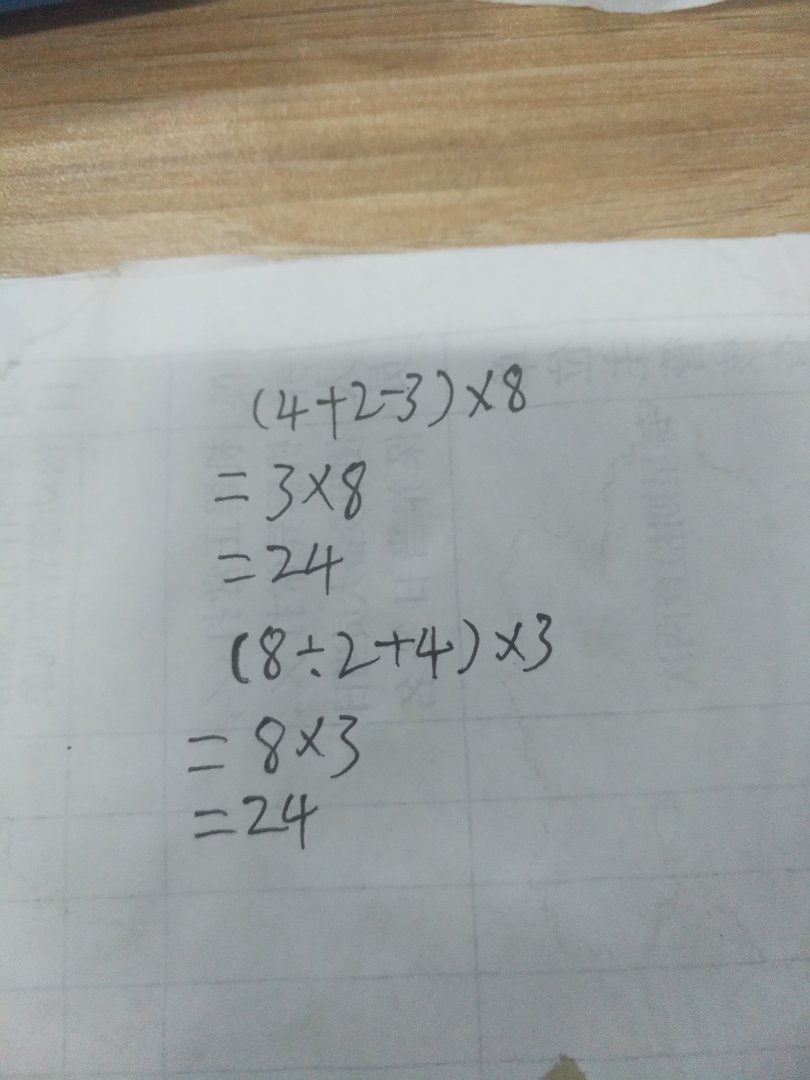 (4+2-3)×8
=3×8
=24
(8÷2+4)×3
=8×3
=24